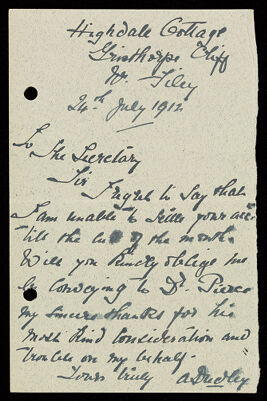 Highdale Cottage
Gristhorpe Cliff
Nr. Filey
24th July 1912
To The Secretary
Sir
I regret to say that
I am unable to settle your acc
till the end of the month.
Will you kindly oblige me
by conveying to Dr. Pierce
my sincere thanks for his
most kind consideration and
trouble on my behalf.
Yours truly A Dudley